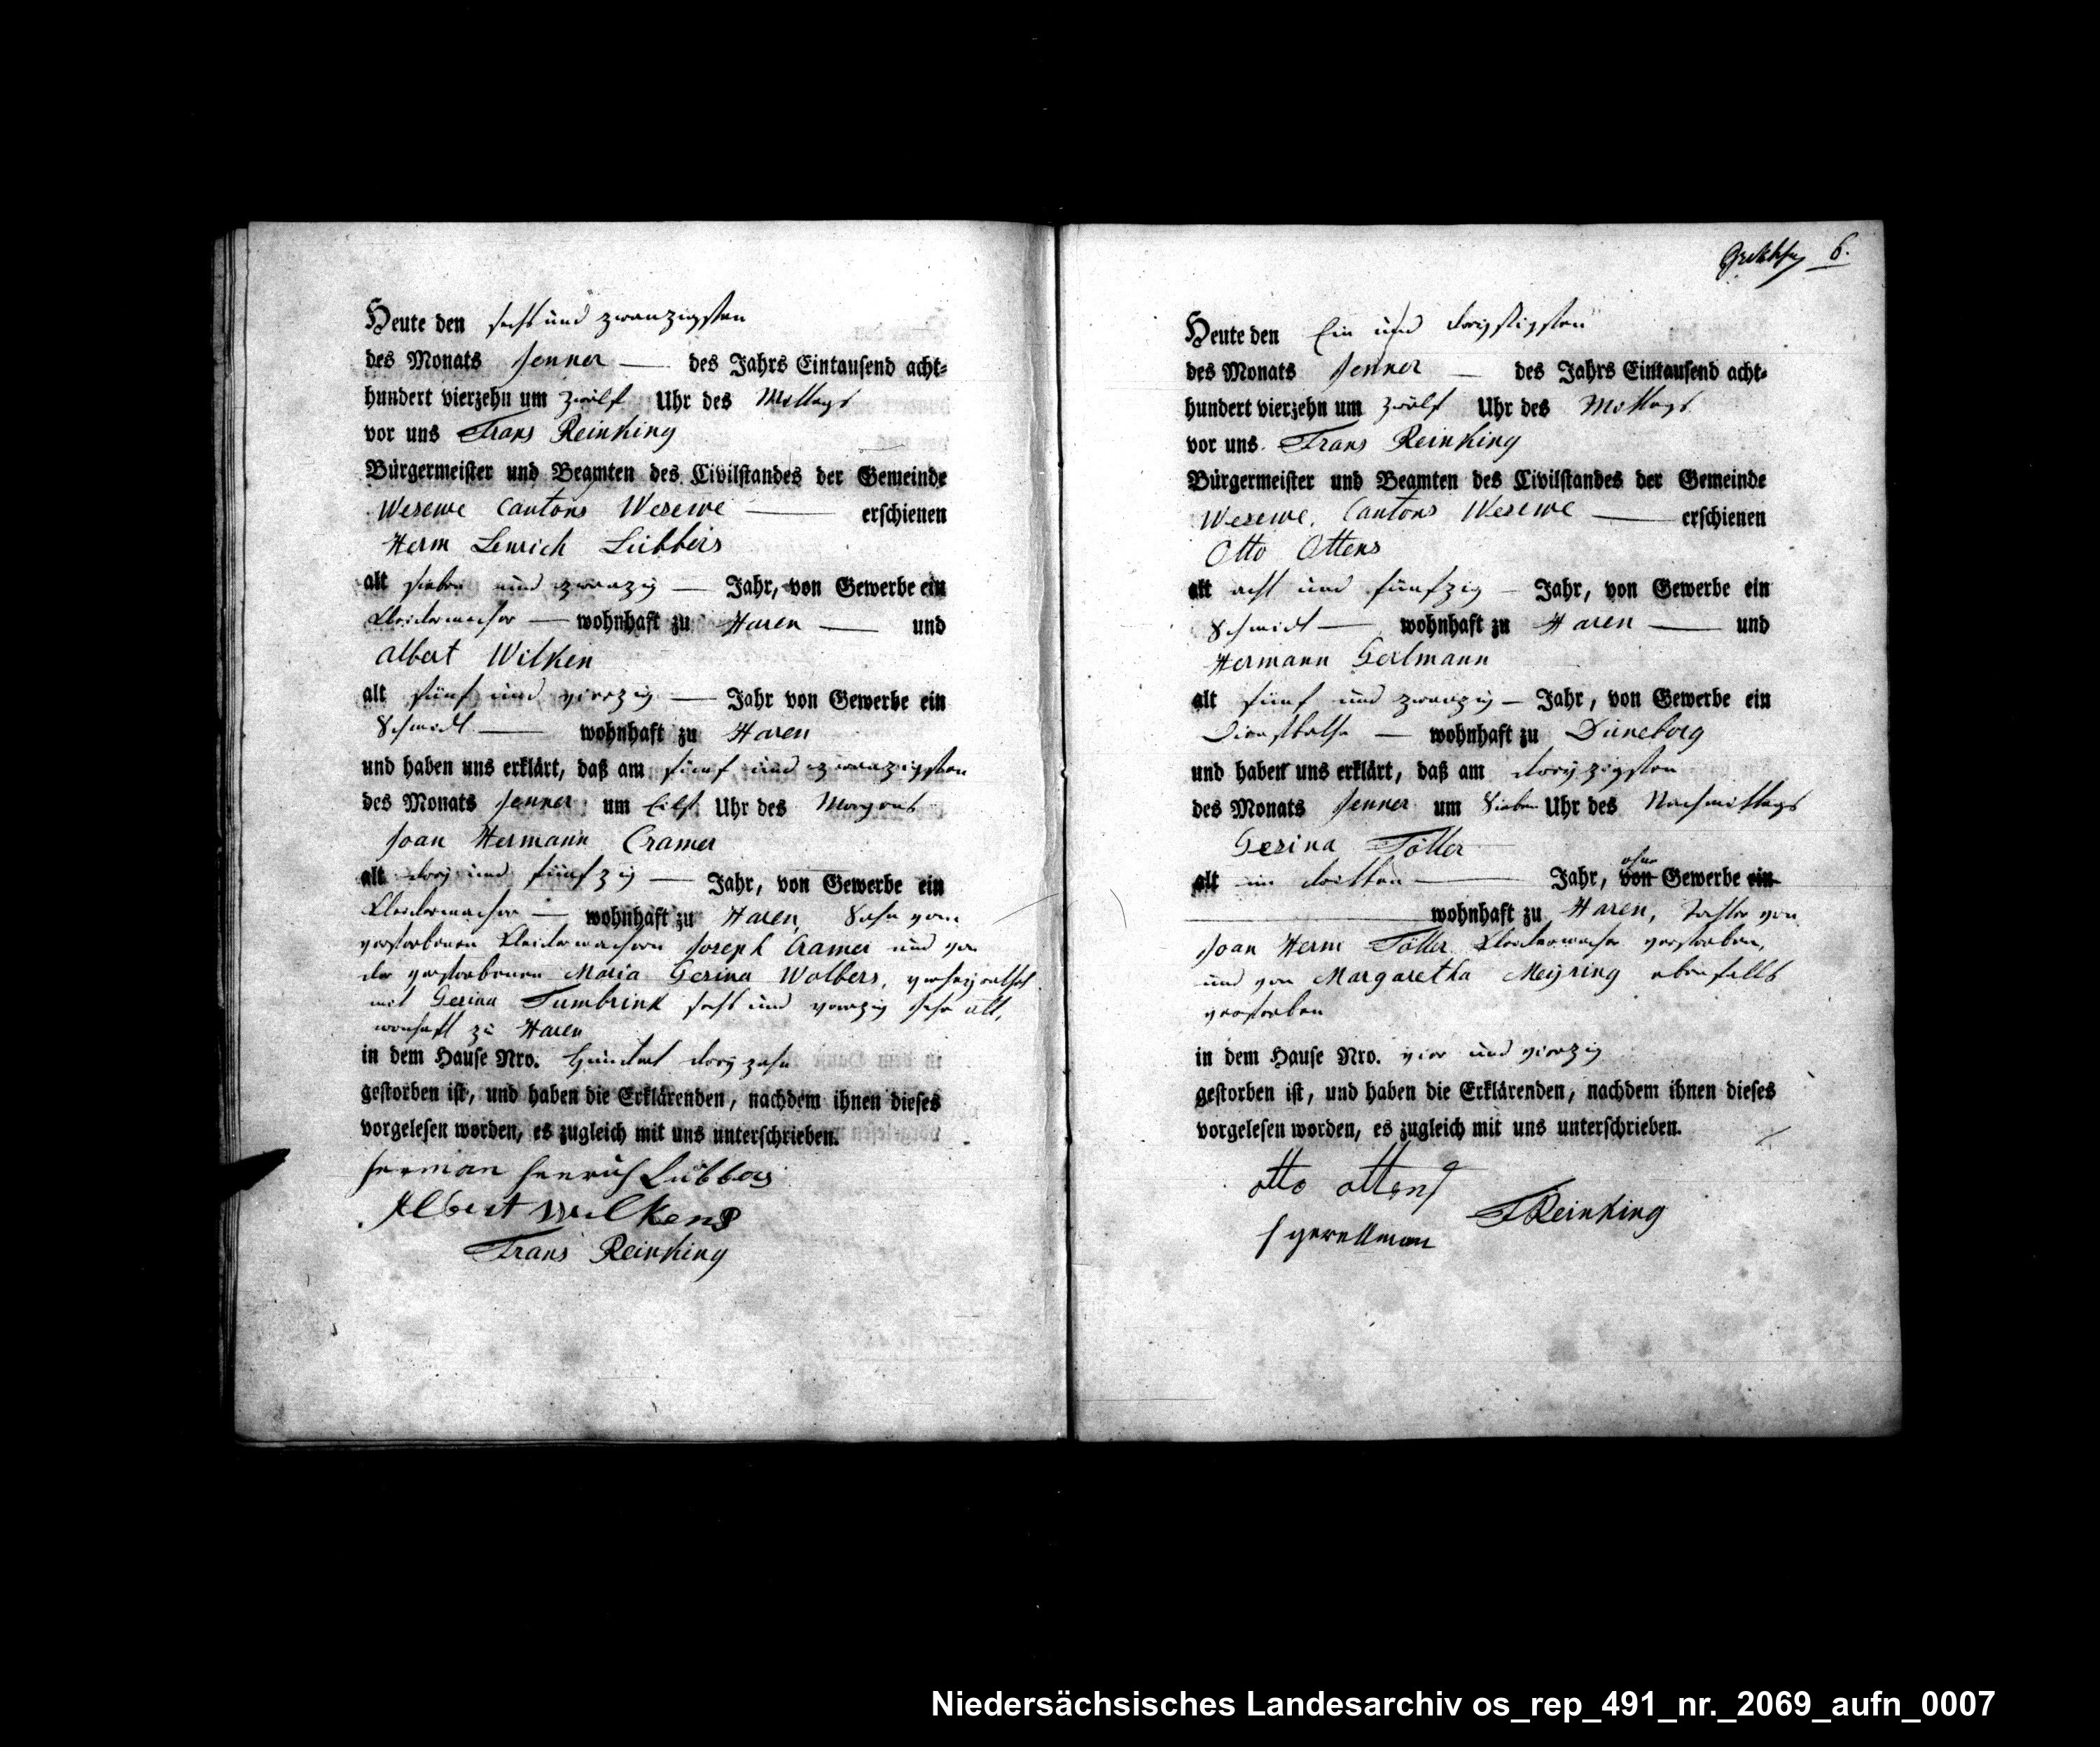 Heute den sechs und zwanzigsten
des Monats Jenner — des Jahrs Eintausend acht-
hundert vierzehn um zwölf Uhr des Mittags
vor uns Frans Reinking
Bürgermeister und Beamten des Civilstandes der Gemeinde
Wesewe Cantons Wesewe — erschienen
Herm Henrich Lübbers
alt sieben und zwanzig — Jahr, von Gewerbe ein
Kleidermacher — wohnhaft zu Haren — und
Albert Wilken
alt fünf und vierzig — Jahr von Gewerbe ein
Schmidt — wohnhaft zu Haren
und haben uns erklärt, daß am fünf und zwanzigsten
des Monats Jenner um Eilf Uhr des Morgens
Joan Hermann Cramer
alt drey und fünfzig — Jahr, von Gewerbe ein
Kleidermacher — wohnhaft zu Haren, Sohn vom
verstorbenen Kleidermachern Joseph Cramer und von
der verstorbenen Maria Gesina Wolbers, verheyrathet
mit Gesina Tumbrink sechs und vierzig Jahr alt,
wonhaft zu Haren
in dem Hause Nro. Hundert dreyzehn
gestorben ist, und haben die Erklärenden, nachdem ihnen dieses
vorgelesen worden, es zugleich mit uns unterschrieben.
Herman Henrich Lübbers
Albert Wilkens
Frans Reinking
6.
Heute den Ein und dreyssigsten
des Monats Jenner — des Jahrs Eintausend acht-
hundert vierzehn um zwölf Uhr des Mittags
vor uns Frans Reinking
Bürgermeister und Beamten des Civilstandes der Gemeinde
Wesewe, Cantons Wesewe — erschienen
Otto Ottens
alt acht und fünfzig — Jahr, von Gewerbe ein
Schmidt — wohnhaft zu Haren — und
Hermann Gerlmann
alt fünf und zwanzig — Jahr, von Gewerbe ein
Dienstbothe — wohnhaft zu Düneborg
und haben uns erklärt, daß am dreyzigsten
des Monats Jenner um Sieben Uhr des Nachmittags
Gesina Töller
alt im dritten — Jahr, von ohne Gewerbe ein
wohnhaft zu Haren, Tochter von
Joan Herm Töller Kleidermacher verstorben,
und von Margaretha Meyring ebenfalls
verstorben
in dem Hause Nro. vier und vierzig
gestorben ist, und haben die Erklärenden, nachdem ihnen dieses
vorgelesen worden, es zugleich mit uns unterschrieben.
Otto Ottens
FReinking
Niedersächsisches Landesarchiv os_rep_491_nr._2069_aufn_0007